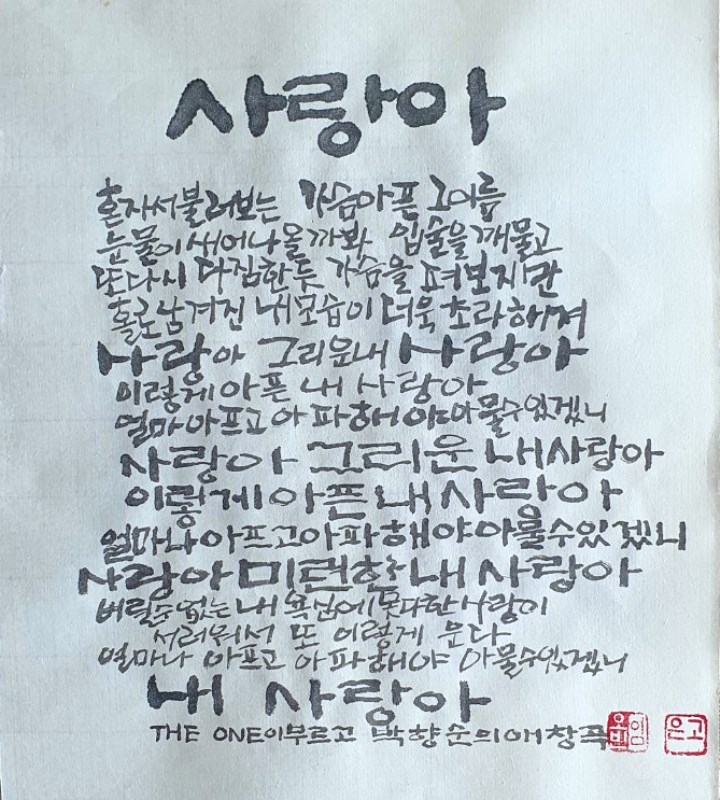 사랑아
혼자서불러보는 가슴아픈 그이름
눈물이새어나올까봐 입술을 깨물고
또다시 다짐한듯 가슴을 펴보지만
홀로남겨진 내모습이 더욱 초라해져
사랑아 그리운내 사랑아
이렇게아픈 내 사랑아
얼마나아프고 아파해야아물수있겠니
사랑아 그리운 내사랑아
이렇게아픈내사랑아
얼마나아프고아파해야아물수있겠니
사랑아미련한내사랑아
버릴수없는내 욕심에못다한사랑이
서러워서 또 이렇게 운다
얼마나 아프고 아파해야 아물수있겠니
내 사랑아
THE ONE이부르고 박향순의애창곡
은고